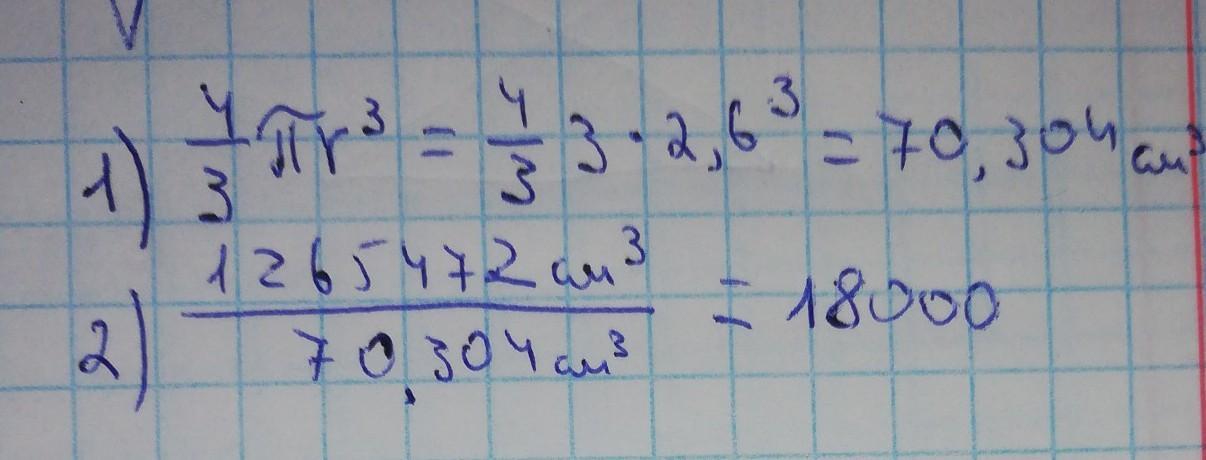 1) 4/3 πr³ = 4/3 3 · 2,6³ = 70,304 см³
2) 1265472 см³ / 70,304 см³ = 18000